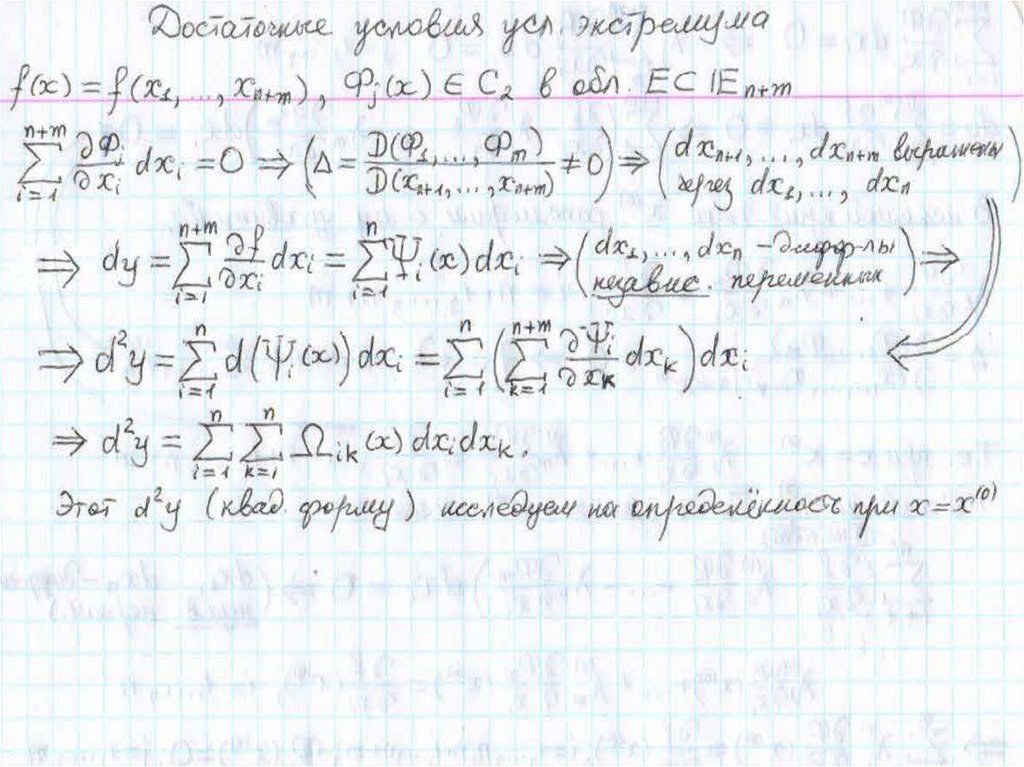 Достаточные условия усл. экстремума
f(x) = f(x₁, ..., xₙ₊ₘ), Фⱼ(x) ∈ C₂ в обл. E ⊂ 𝔼ₙ₊ₘ
∑ᵢ₌₁ⁿ⁺ᵐ ∂Фⱼ/∂xᵢ dxᵢ = 0 ⇒ (Δ = D(Ф₁, ..., Фₘ)/D(xₙ₊₁, ..., xₙ₊ₘ) ≠ 0) ⇒ (dxₙ₊₁, ..., dxₙ₊ₘ выражены через dx₁, ..., dxₙ)
⇒ dy = ∑ᵢ₌₁ⁿ⁺ᵐ ∂f/∂xᵢ dxᵢ = ∑ᵢ₌₁ⁿ Ψᵢ(x) dxᵢ ⇒ (dx₁, ..., dxₙ - дифф-лы независ. переменных) ⇒
⇒ d²y = ∑ᵢ₌₁ⁿ d(Ψᵢ(x)) dxᵢ = ∑ᵢ₌₁ⁿ (∑ₖ₌₁ⁿ⁺ᵐ ∂Ψᵢ/∂xₖ dxₖ) dxᵢ
⇒ d²y = ∑ᵢ₌₁ⁿ ∑ₖ₌₁ⁿ Ωᵢₖ(x) dxᵢ dxₖ.
Этот d²y (квад. форму) исследуем на определённость при x = x⁽⁰⁾